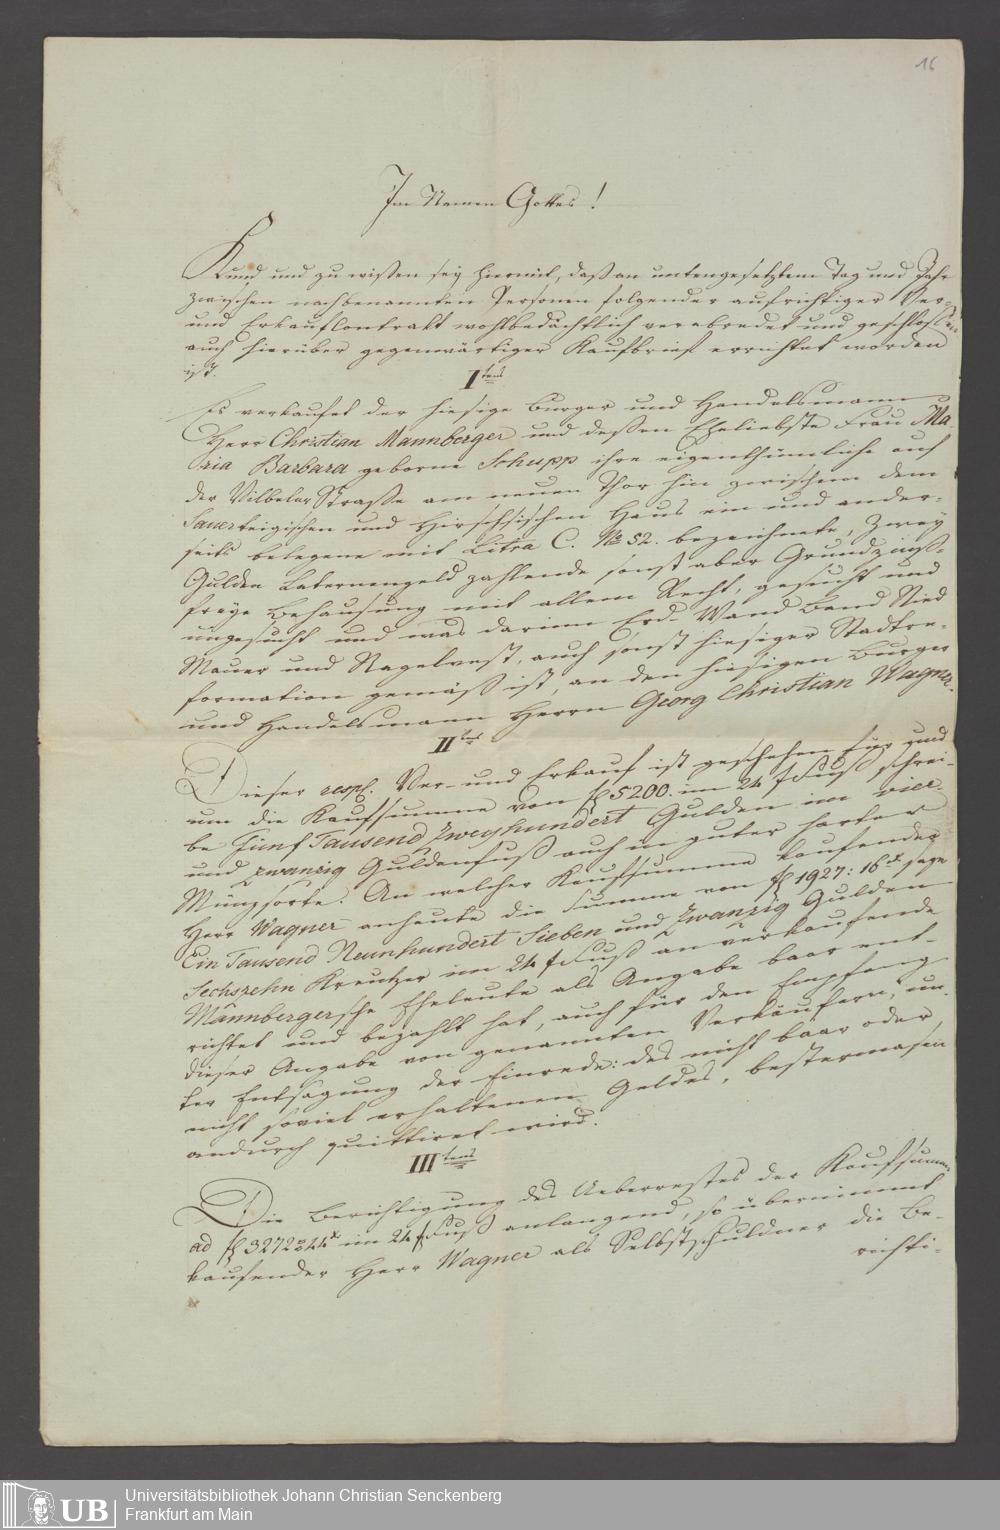 16
Im Namen Gottes!
Kund und zu wißen sey hiermit, daß an untengesetztem Tag und Jahr
zwischen nachbenannten Personen folgender aufrichtiger Ver-
und Erkaufcontrakt wohlbedächtlich verabredet und geschloßen
auch hierüber gegenwärtiger Kaufbrief errichtet worden
ist.
I tens
Es verkaufet der hiesige Burger und Handelsmann
Herr Christian Mannberger und deßen Eheliebste Frau Ma-
ria Barbara geborne Schupp ihre eigenthümliche auf
der Vilbeler Straße am neuen Thor hin zwischen dem
Sauerteigischen und Hirschischen Haus ein und ander-
seits belegene mit Litra C. No 52. bezeichnete, Zwey
Gulden Laternengeld zahlende sonst aber Grundzinß-
freye Behausung mit allem Recht, gesucht und
ungesucht und was darinn Erd- Wand Band Nied
Mauer und Nagelvest, auch sonst hiesiger Stadtre-
formation gemäß ist, an den hiesigen Burger
und Handelsmann Herrn Georg Christian Wagner.
II tens
Dieser resp. Ver- und Erkauf ist geschehen für und
um die Kaufsumme von fl 5200. im 24 f Fuß schrei-
be Fünf Tausend Zweyhundert Gulden im vier-
und zwanzig Guldenfuß auch in guter harter
Münzsorte. An welcher Kaufsumme kaufender
Herr Wagner anheute die Summe von fl 1927: 16 x sage
Ein Tausend Neunhundert Sieben und Zwanzig Gulden
Sechszehn Kreutzer im 24 f Fuß an verkaufende
Mannbergersche Eheleute als Angabe baar ent-
richtet und bezahlt hat, auch für den Empfang
dieser Angabe von genannten Verkäufern, un-
ter Entsagung der Einrede: des nicht baar oder
nicht soviel erhaltenen Geldes, bestermasen
andurch quittiret wird.
III tens
Die Berichtigung des Ueberrestes der Kaufsumme
ad fl 3272: 44 x im 24 f Fuß anlangend, so übernimmt
kaufender Herr Wagner als Selbstschuldner die Be-
richti-
UB
Universitätsbibliothek Johann Christian Senckenberg
Frankfurt am Main